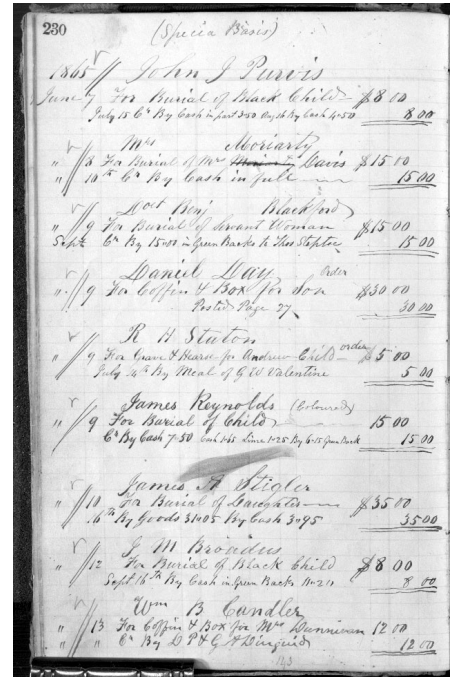 230
(Specia Basis)
1865 John J Purvis
June 7 For Burial of Black Child $8 00
July 15 Cr By Cash in part 3=50 Aug 26 By Cash 4=50 8 00
Mrs Moriarty
" 8 For Burial of Mrs Moriarty Davis $15 00
" 10th Cr By Cash in full 15 00
Doct Benj Blackford
" 9 For Burial of Servant Woman $15 00
Sept Cr By 15=00 in Green Backs to Thos Steptoe 15 00
Daniel Day order
" 9 For Coffin & Box for Son $30 00
Posted Page 27 30 00
R H Staton
" 9 For Grave & Hearse for Andrew Child order $5 00
July 4th By Meal of G W Valentine 5 00
James Reynolds (Coloured)
" 9 For Burial of Child 15 00
Cr By Cash 7=50 Cash 1=65 Lime 1=25 By 6=15 Green Back 15 00
James A Stigler
" 10 For Burial of Daughter $35 00
" 16th By Goods 31=05 By Cash 3=95 35 00
J M Broadus
" 12 For Burial of Black Child $8 00
Sept 16th By Cash in Green Backs 8 00
Wm B Candler
" 13 For Coffin & Box for Mrs Dunnivan 12 00
" " Cr By D P & G A Diuguid 12 00